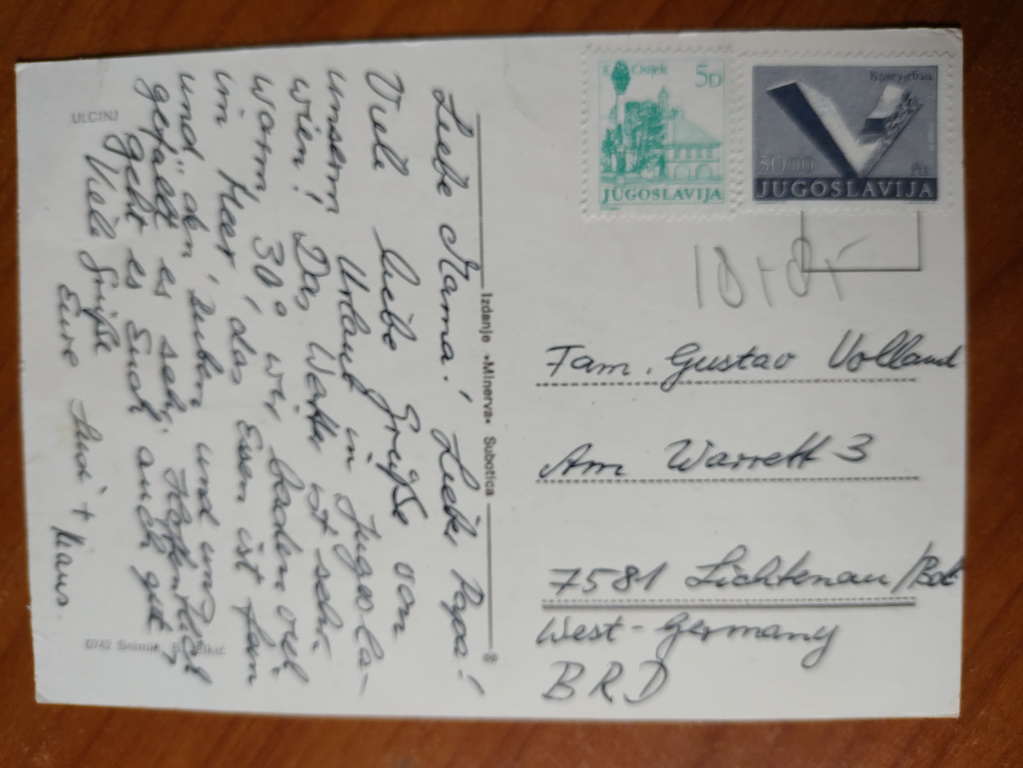 ULCINJ
Liebe Mama! Lieber Papa!
Viele liebe Grüße von
unserm Urlaub in Jugosla-
wien! Das Wetter ist sehr
warm, 30°, wir baden viel
im Meer, das Essen ist fein
und den Buben und uns
gefällt es sehr. Hoffentlich
geht es Euch auch gut.
Viele Grüße
Eure
Izdanje »Minerva« Subotica
Osijek
5D
JUGOSLAVIJA
50.00
JUGOSLAVIJA
Fam. Gustav Volland
Am Warrett 3
7581 Lichtenau/Bd
West-Germany
BRD